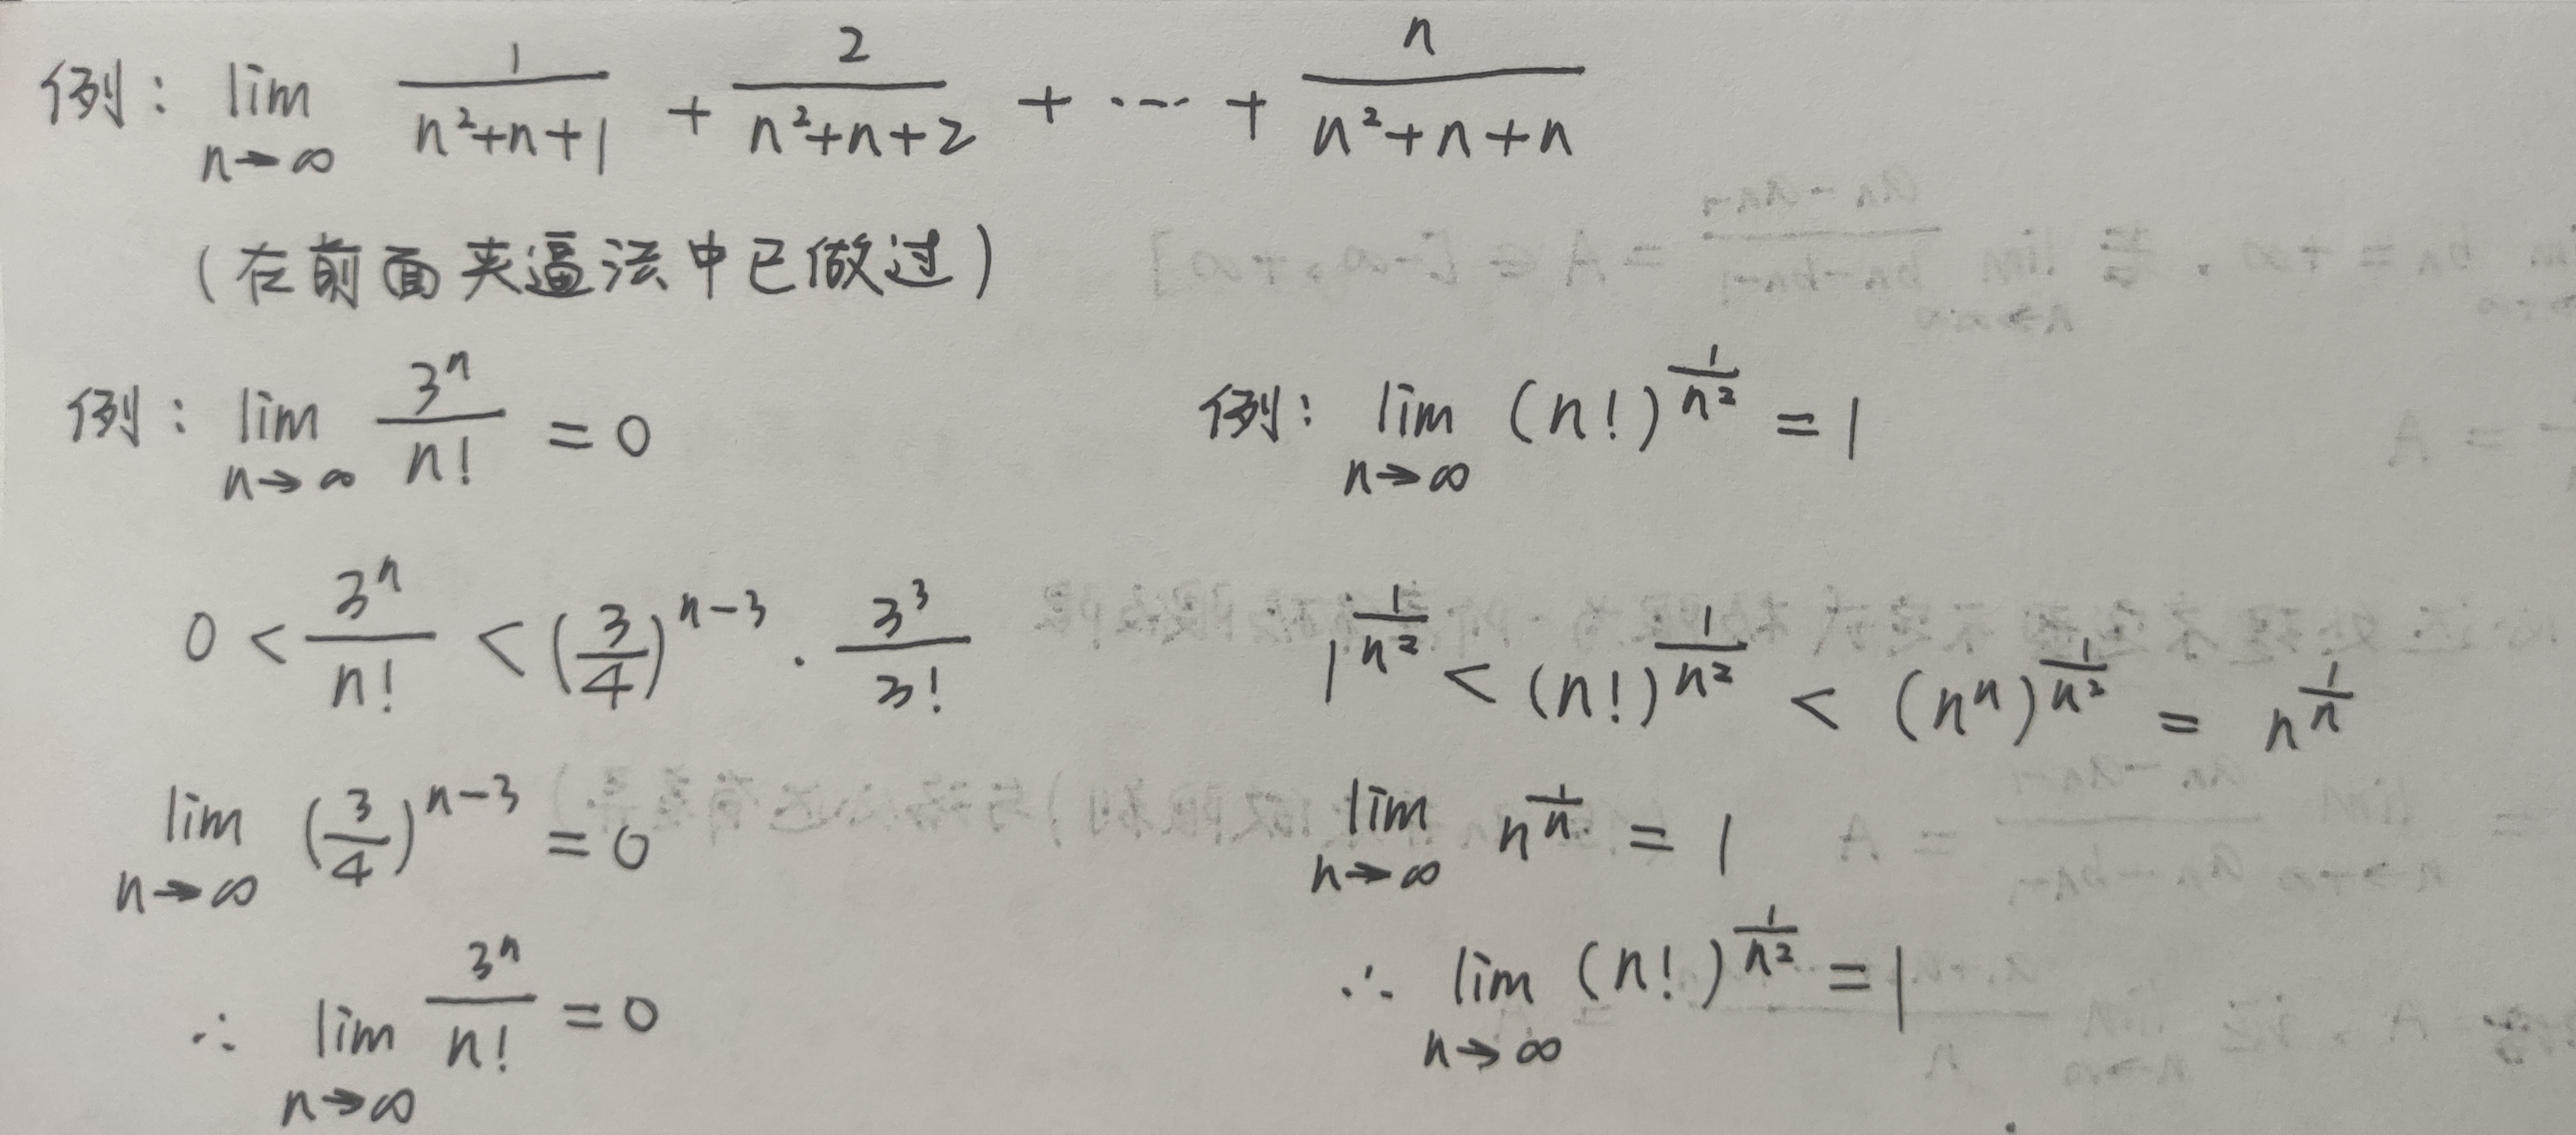 例: lim n→∞ 1/(n²+n+1) + 2/(n²+n+2) + ⋯ + n/(n²+n+n)
(在前面夹逼法中已做过)
例: lim n→∞ 3ⁿ/n! = 0
0 < 3ⁿ/n! < (3/4)^(n-3) · 3³/3!
lim n→∞ (3/4)^(n-3) = 0
∴ lim n→∞ 3ⁿ/n! = 0
例: lim n→∞ (n!)^(1/n²) = 1
1^(1/n²) < (n!)^(1/n²) < (nⁿ)^(1/n²) = n^(1/n)
lim n→∞ n^(1/n) = 1
∴ lim n→∞ (n!)^(1/n²) = 1